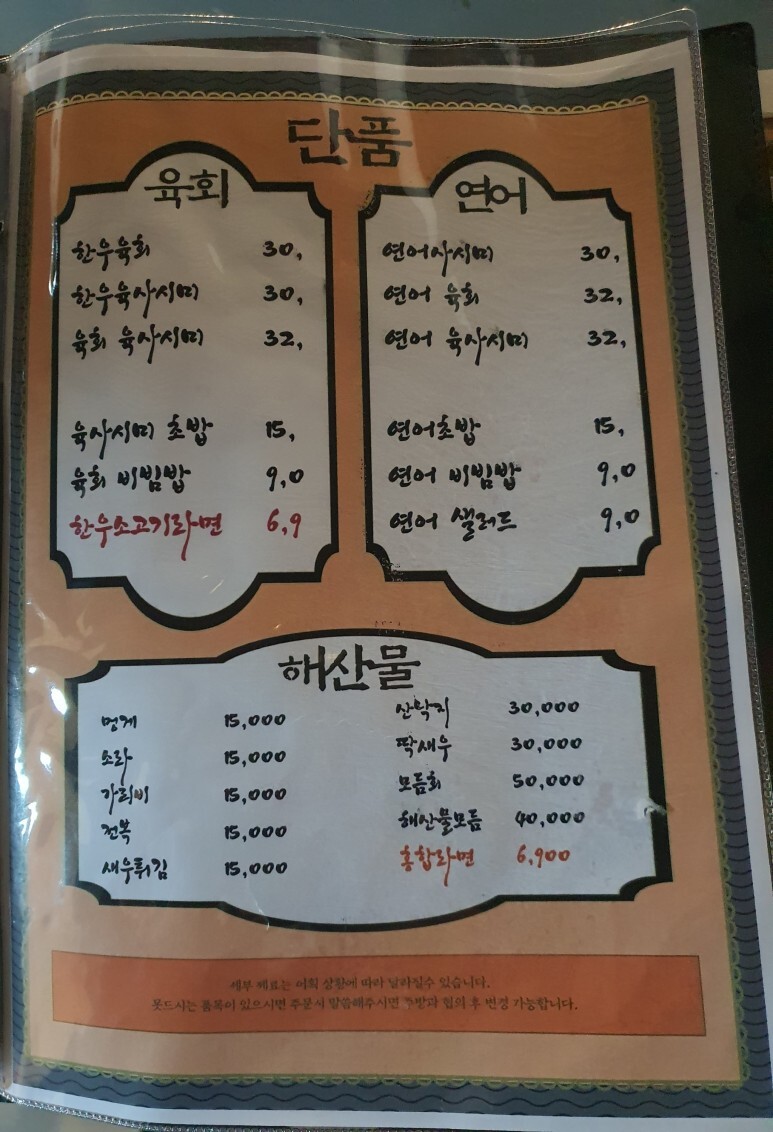 단품
육회
한우육회 30,
한우육사시미 30,
육회 육사시미 32,
육사시미 초밥 15,
육회 비빔밥 9,0
한우소고기라면 6,9
연어
연어사시미 30,
연어 육회 32,
연어 육사시미 32,
연어초밥 15,
연어 비빔밥 9,0
연어 샐러드 9,0
해산물
멍게 15,000
소라 15,000
가리비 15,000
전복 15,000
새우튀김 15,000
산낙지 30,000
딱새우 30,000
모듬회 50,000
해산물모듬 40,000
홍합라면 6,900
세부 째료는 어획 상황에 따라 달라질수 있습니다.
못드시는 품목이 있으시면 주문시 말씀해주시면 주방과 협의 후 변경 가능합니다.